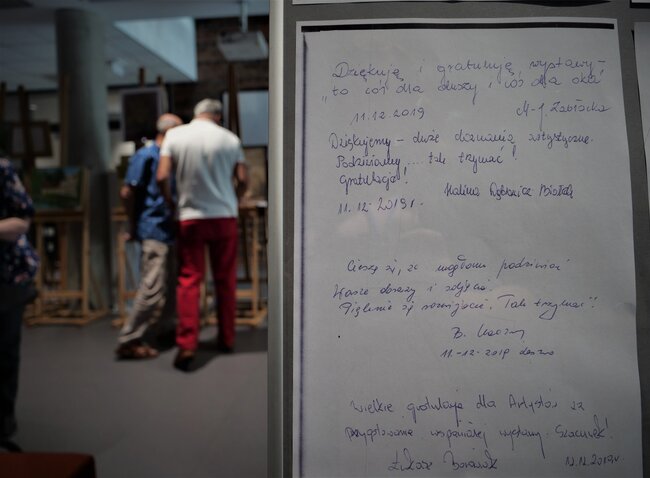 Dziękuję i gratuluję wystawy –
"to coś dla duszy i coś dla oka"
11.12.2019 M-J Zabłocka
Dziękujemy – duże doznania artystyczne.
Podziwiamy .... tak trzymać!
Gratulacje!
Halina
11.12-2019r.
Cieszę się, że mogłam podziwiać
Wasze obrazy i zdjęcia.
Pięknie się rozwijacie. "Tak trzymać".
B.
11-12-2019
Wielkie gratulacje dla Artystów za
przygotowanie wspaniałej wystawy. Szacunek!
Łukasz